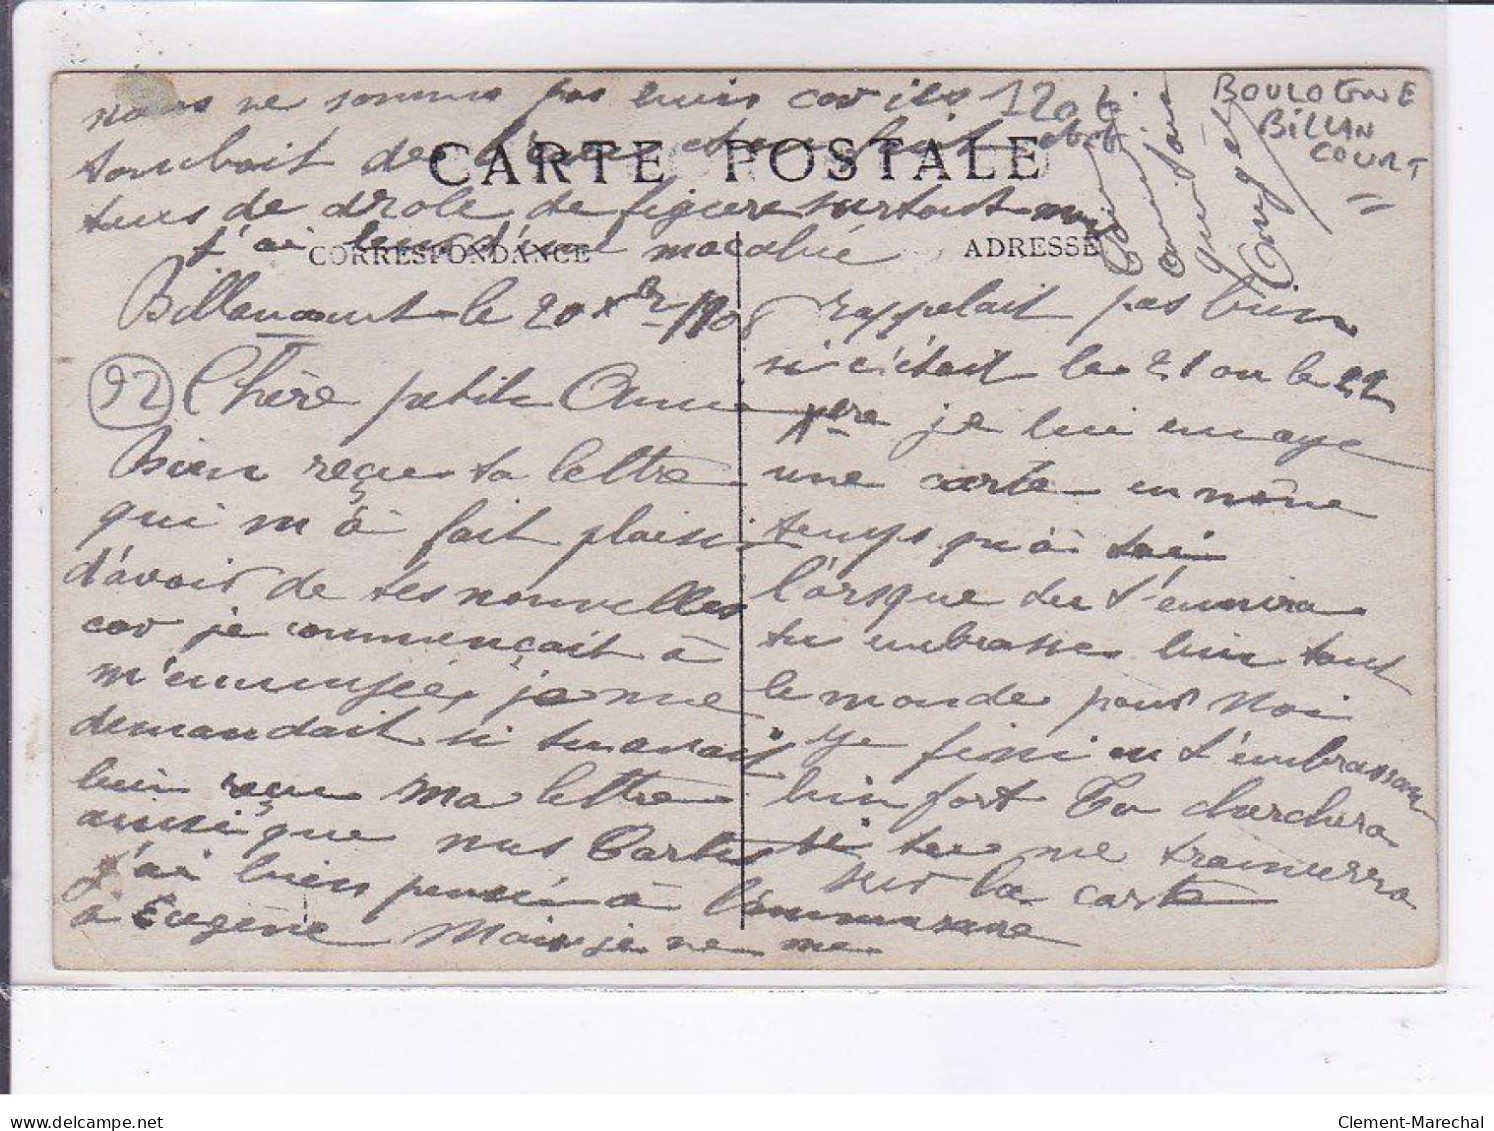 nous ne sommes pas bien car ils
tombait de l'eau et on fait
tous de drole de figure surtout moi
j'ai l'air macabré
1206
BOULOGNE
BILLAN
COURT
CARTE POSTALE
CORRESPONDANCE
ADRESSE
Billancourt le 20 Xbr 1908
92
Chère petite Annie
Bien reçue ta lettre
qui m'à fait plaisir
d'avoir de tes nouvelles
car je commençait à
m'ennuyée, je me
demandait si tu avait
bien reçue ma lettre
ainsi que nos Cartes
j'ai bien pensé à l'anniversaire
à Eugène Mais je ne me
rappelait pas bien
si c'était le 21 ou le 22
Xbre je lui envoye
une carte en même
temps qu'à toi
l'orsque tu t'ennuira
tu embrasse bien tout
le monde pour Moi
je fini en t'embrassant
bien fort Tu cherchera
si tu me trouverra
sur la carte
Ton amie
Angèl